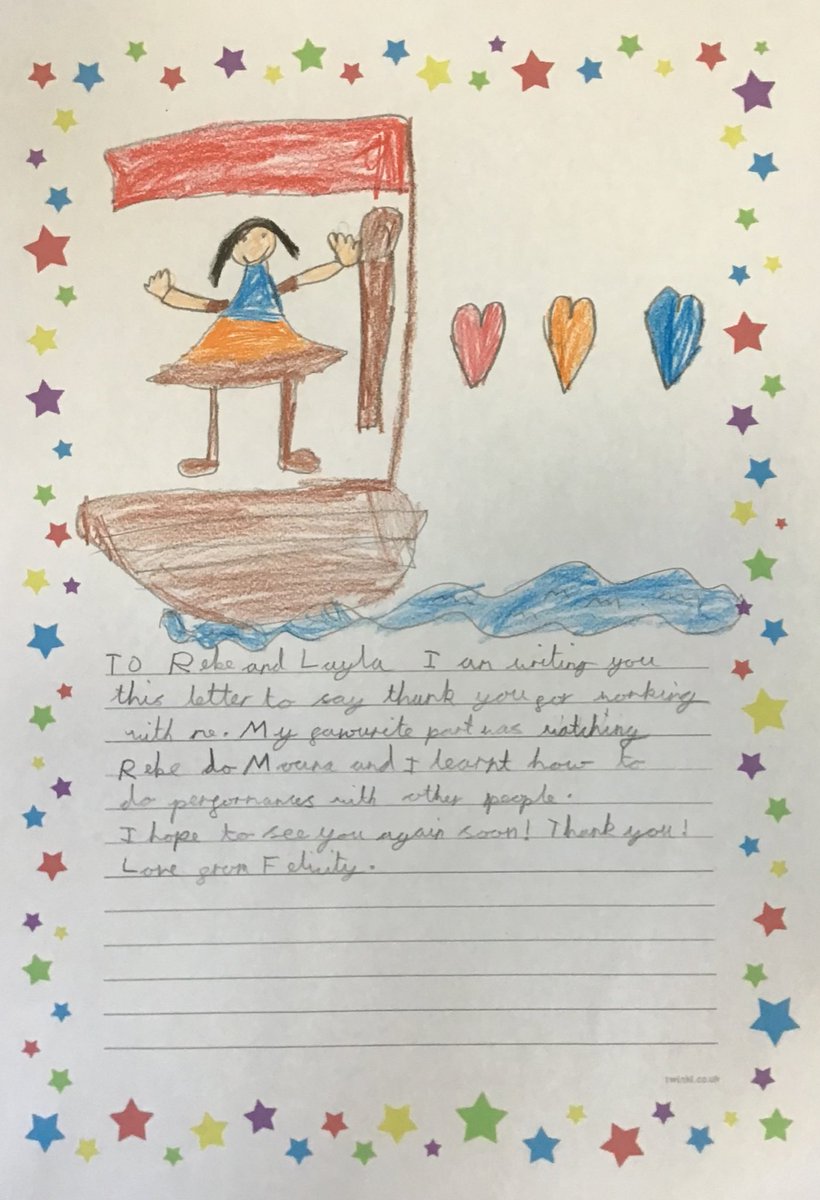 To Rebe and Layla I am writing you
this letter to say thank you for working
with me. My favourite part was watching
Rebe do Moana and I learnt how to
do performances with other people.
I hope to see you again soon! Thank you!
Love from Felicity.
twinkl.co.uk